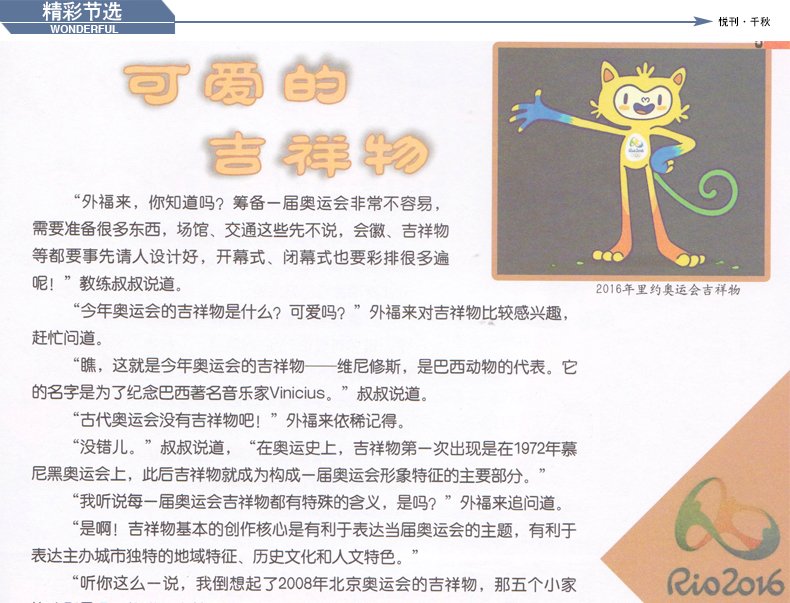 精彩节选
WONDERFUL
悦刊·千秋
可爱的
吉祥物
“外福来，你知道吗？筹备一届奥运会非常不容易，
需要准备很多东西，场馆、交通这些先不说，会徽、吉祥物
等都要事先请人设计好，开幕式、闭幕式也要彩排很多遍
呢！”教练叔叔说道。
2016年里约奥运会吉祥物
“今年奥运会的吉祥物是什么？可爱吗？”外福来对吉祥物比较感兴趣，
赶忙问道。
“瞧，这就是今年奥运会的吉祥物——维尼修斯，是巴西动物的代表。它
的名字是为了纪念巴西著名音乐家Vinicius。”叔叔说道。
“古代奥运会没有吉祥物吧！”外福来依稀记得。
“没错儿。”叔叔说道，“在奥运史上，吉祥物第一次出现是在1972年慕
尼黑奥运会上，此后吉祥物就成为构成一届奥运会形象特征的主要部分。”
“我听说每一届奥运会吉祥物都有特殊的含义，是吗？”外福来追问道。
“是啊！吉祥物基本的创作核心是有利于表达当届奥运会的主题，有利于
表达主办城市独特的地域特征、历史文化和人文特色。”
“听你这么一说，我倒想起了2008年北京奥运会的吉祥物，那五个小家
Rio2016